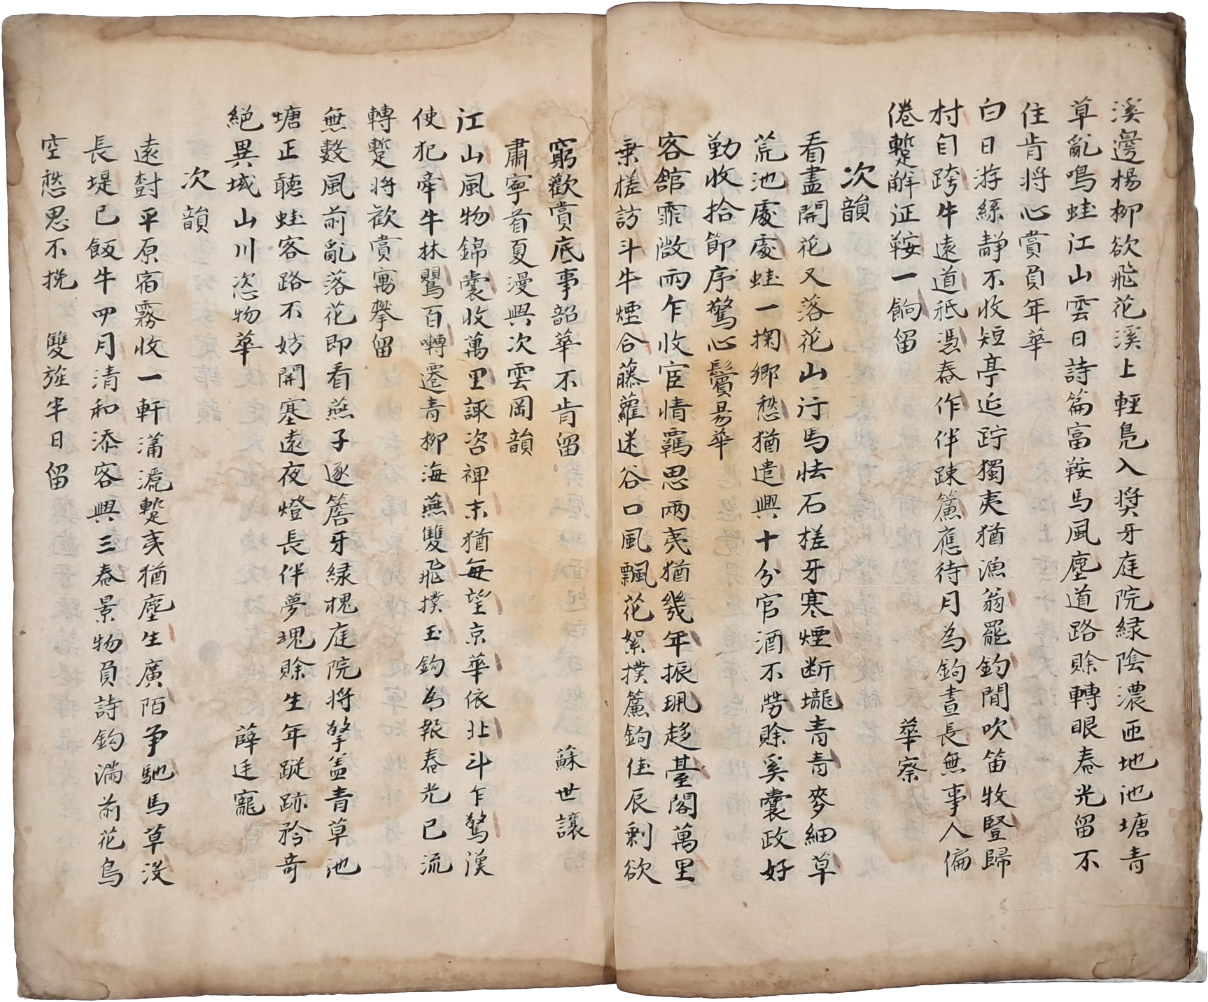 溪邊楊柳欲飛花溪上輕鳧入奬牙庭院綠陰濃匝地池塘青
草亂鳴蛙江山雲日詩篇富鞍馬風塵道路賖轉眼春光留不
住肯將心賞負年華
白日游絲靜不收短亭近跨獨夷猶漁翁罷釣閒吹笛牧豎歸
村自跨牛遠道秖憑春作伴踈簾應待月為鈎晝長無事人偏
倦蹔觧征鞍一餉留
次韻 華察
看盡開花又落花山行馬怯石槎牙寒煙断壠青青麥細草
荒池處處蛙一掬鄉愁猶遣興十分官酒不勞賖奚囊政好
勤收拾節序驚心鬢易華
客舘乖敞雨乍收宦情羈思兩夷猶幾年振珮趍臺閣萬里
乗槎訪斗牛煙合藤蘿迷谷口風飄花絮撲簾鈎佳辰剰欲
窮歡賞底事韶華不肯留
肅寧首夏漫興次雲岡韻 蘇世讓
江山風物錦囊收萬里諏咨裨末猶每望京華依北斗乍驚漢
使犯牽牛林鸎百囀遷青柳海燕雙飛撲玉鈎為報春光已流
轉蹔將歡賞寓攀留
無數風前亂落花即看燕子逐簷牙綠槐庭院將擎盖青草池
塘正聽蛙客路不妨開塞遠夜燈長伴夢魂賖生年蹤跡矜竒
絕異域山川恣物華
次韻 薛廷寵
遠對平原宿霧收一軒瀟洒蹔夷猶塵生廣陌争馳馬草没
長堤已飯牛四月清和添客興三春景物負詩鈎满前花鳥
空愁思不挽雙旌半日留